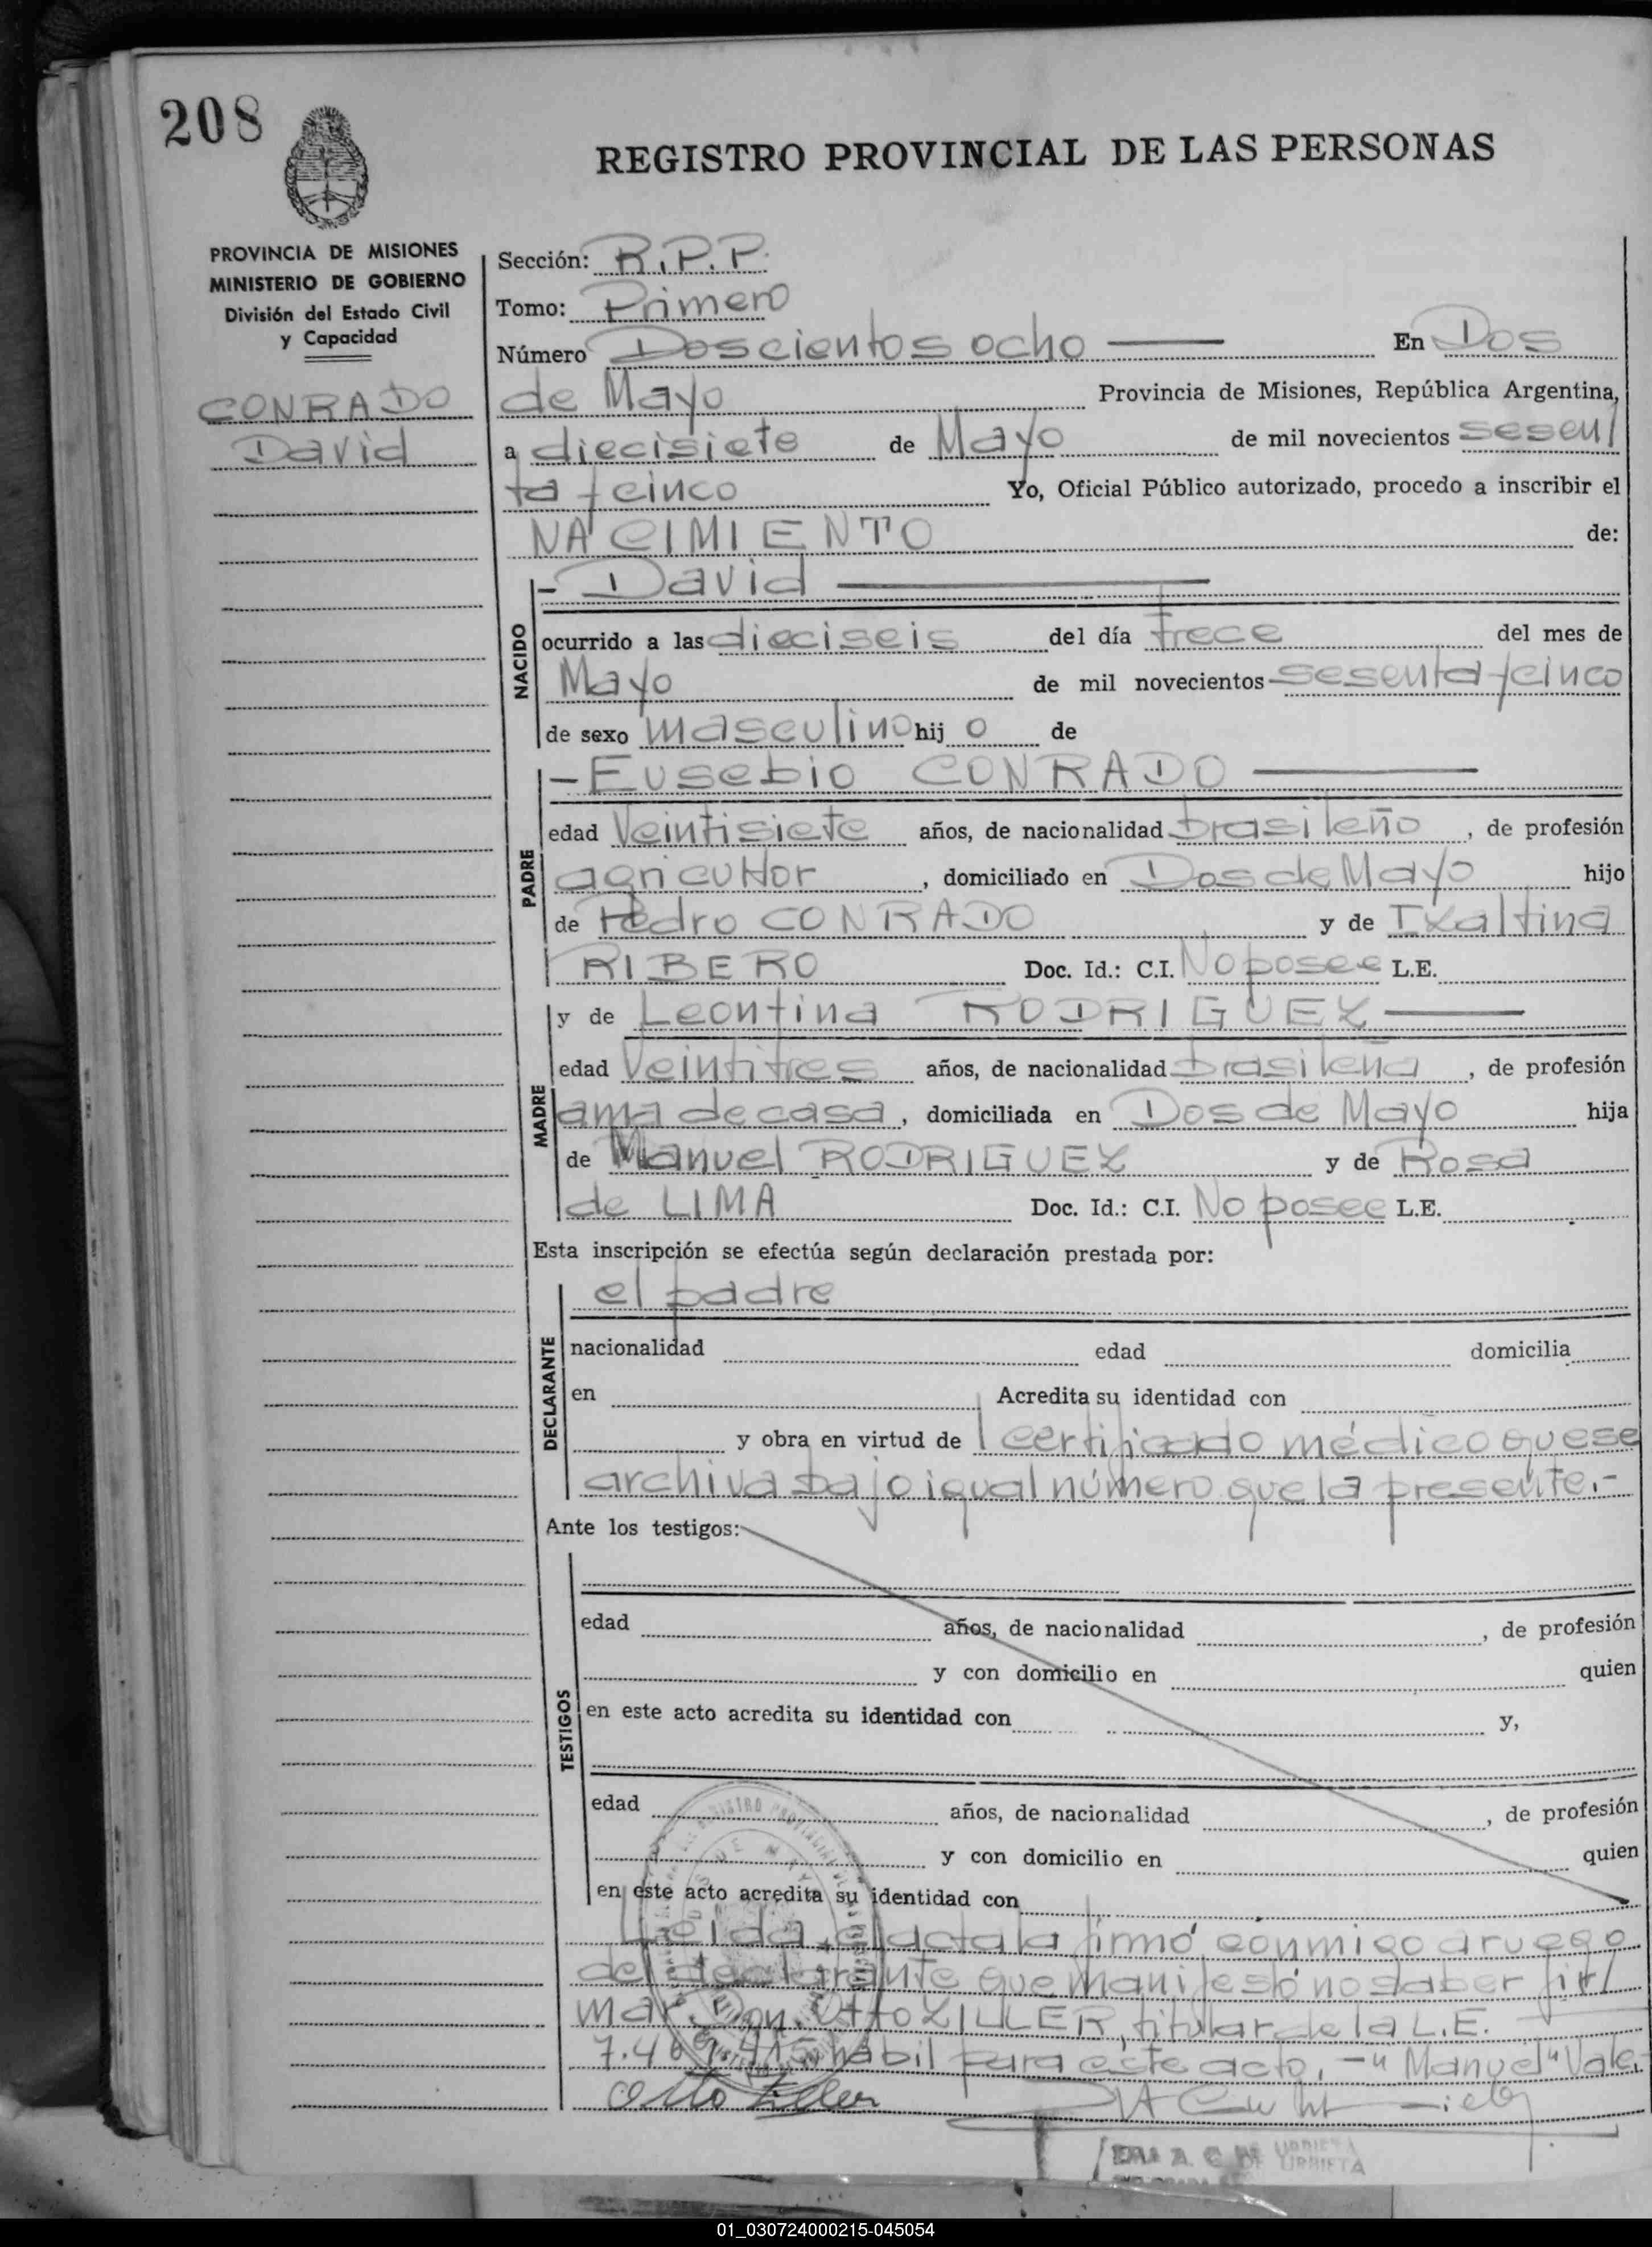 208
REGISTRO PROVINCIAL DE LAS PERSONAS
PROVINCIA DE MISIONES
MINISTERIO DE GOBIERNO
División del Estado Civil
y Capacidad
CONRADO
David
Sección: R.P.P.
Tomo: Primero
Número Doscientos ocho En Dos
de Mayo Provincia de Misiones, República Argentina,
a diecisiete de Mayo de mil novecientos sesen/
ta y cinco Yo, Oficial Público autorizado, procedo a inscribir el
NACIMIENTO de:
- David
NACIDO
ocurrido a las dieciseis del día trece del mes de
Mayo de mil novecientos sesenta y cinco
de sexo masculino hij o de
- Eusebio CONRADO
PADRE
edad Veintisiete años, de nacionalidad brasileño, de profesión
agricultor, domiciliado en Dos de Mayo hijo
de Pedro CONRADO y de Ixaltina
RIBERO Doc. Id.: C.I. No posee L.E.
y de Leontina RODRIGUEZ
MADRE
edad Veintitres años, de nacionalidad brasileña, de profesión
ama de casa, domiciliada en Dos de Mayo hija
de Manuel RODRIGUEZ y de Rosa
de LIMA Doc. Id.: C.I. No posee L.E.
Esta inscripción se efectúa según declaración prestada por:
el padre
DECLARANTE
nacionalidad edad domicilia
en Acredita su identidad con
y obra en virtud de certificado médico que se
archiva bajo igual número que la presente.-
Ante los testigos:
TESTIGOS
edad años, de nacionalidad , de profesión
y con domicilio en quien
en este acto acredita su identidad con y,
edad años, de nacionalidad , de profesión
y con domicilio en quien
en este acto acredita su identidad con
Leida el acta la firmó conmigo a ruego
del declarante que manifestó no saber fir/
mar, Otto ZILLER, titular de la L.E.
7.469.415 habil para este acto.- "Manuel" Vale.
Otto Ziller
URRIETA
01_030724000215-045054